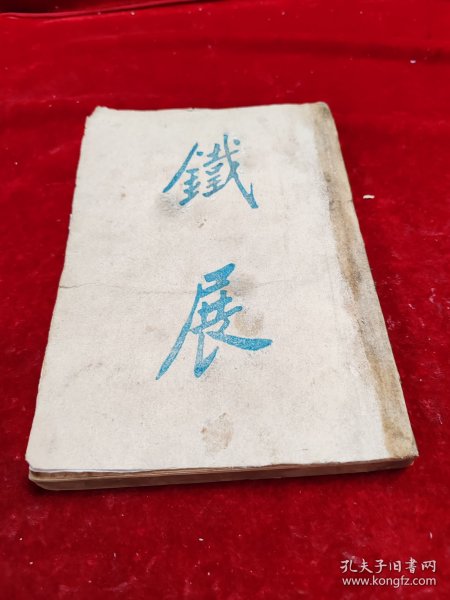 鐵
展
孔夫子旧书网
www.kongfz.com